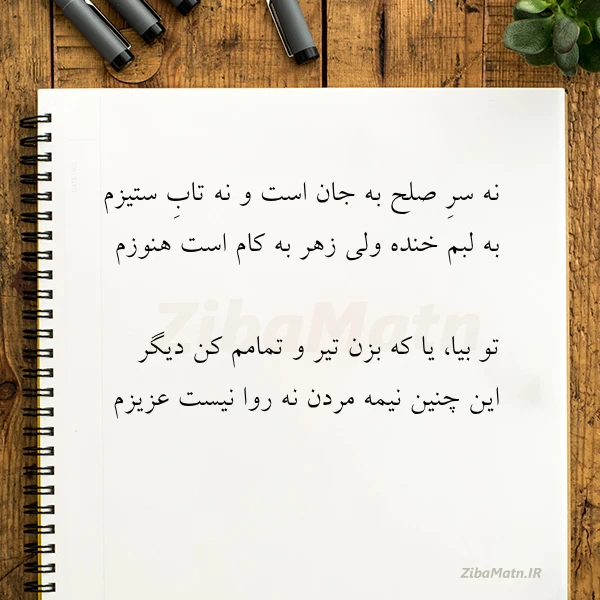 نه سرِ صلح به جان است و نه تابِ ستیزم
به لبم خنده ولی زهر به کام است هنوزم
تو بیا، یا که بزن تیر و تمامم کن دیگر
این چنین نیمه مردن نه روا نیست عزیزم
ZibaMatn
ZibaMatn.IR